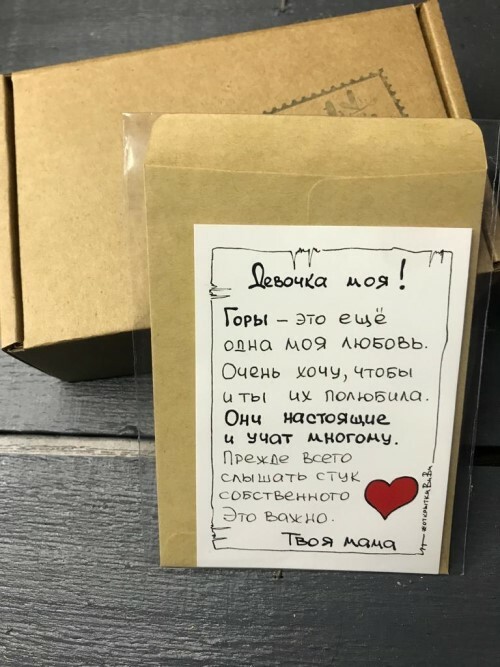 Девочка моя!
Горы – это ещё
одна моя любовь.
Очень хочу, чтобы
и ты их полюбила.
Они настоящие
и учат многому.
Прежде всего
слышать стук
собственного ❤
Это важно.
Твоя мама
#открыткаВаВа